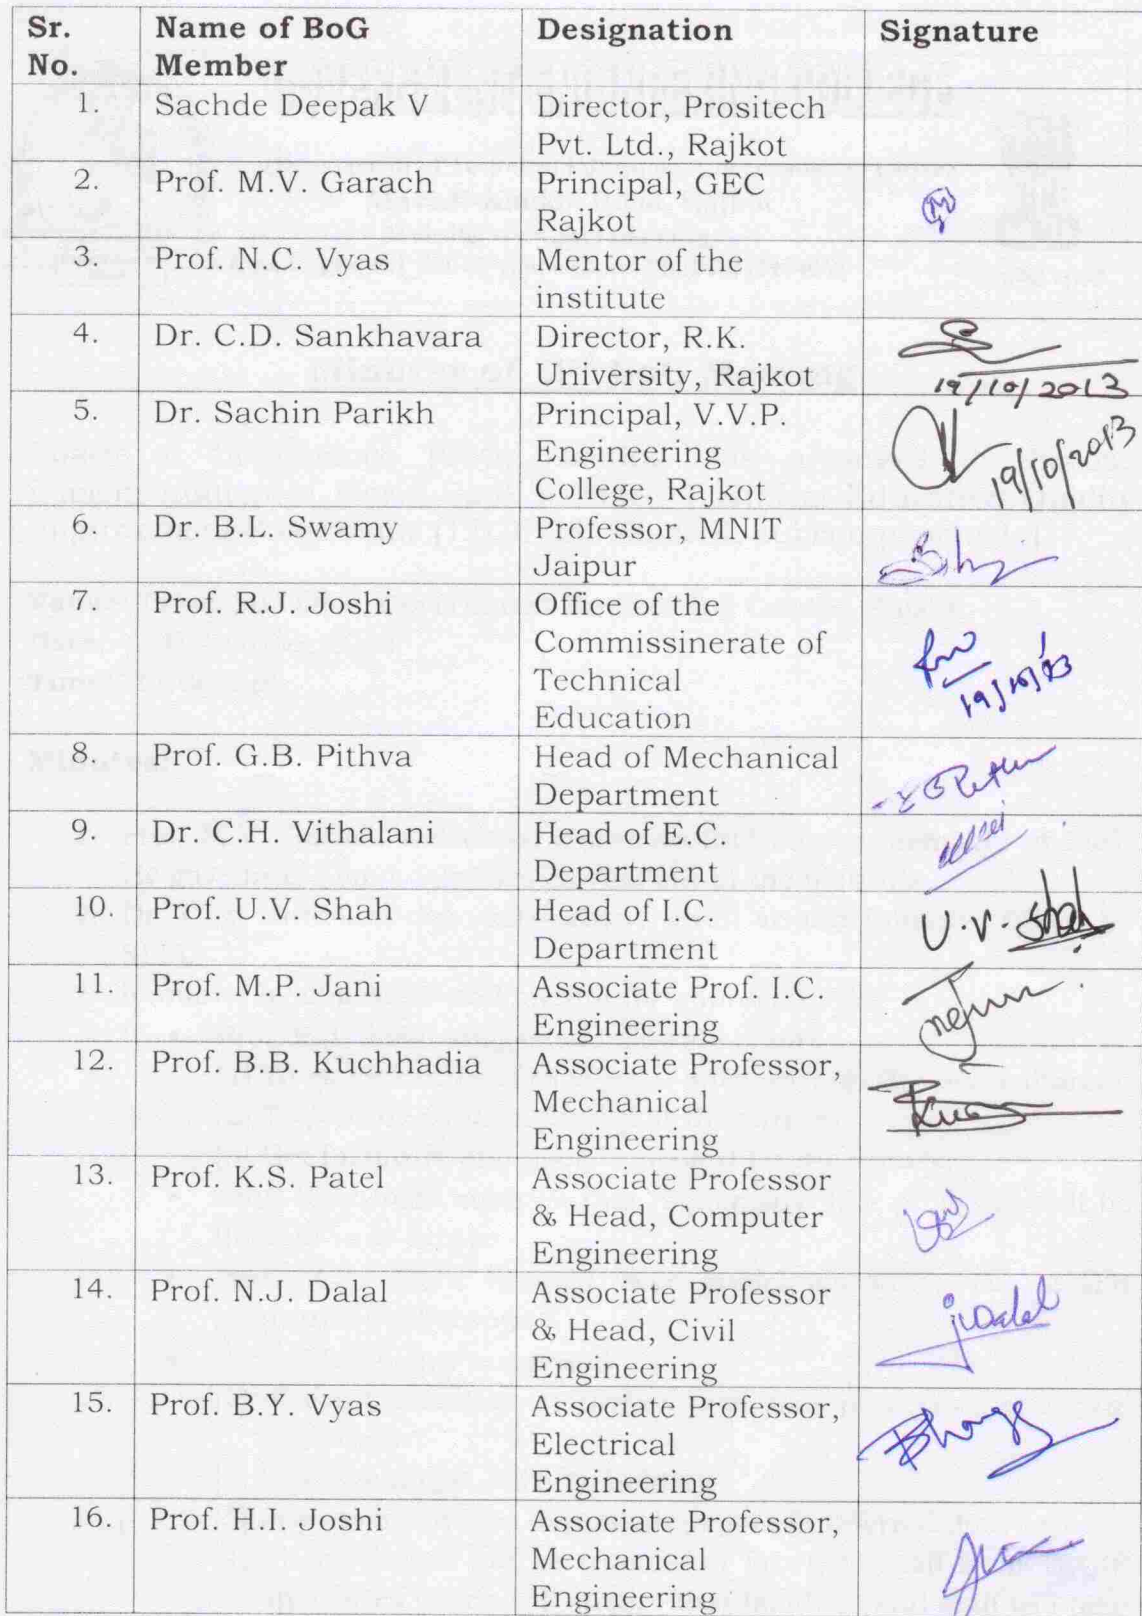 Sr. Name of BoG Designation Signature
No. Member
1. Sachde Deepak V Director, Prositech
Pvt. Ltd., Rajkot
2. Prof. M.V. Garach Principal, GEC
Rajkot
3. Prof. N.C. Vyas Mentor of the
institute
4. Dr. C.D. Sankhavara Director, R.K.
University, Rajkot 19/10/2013
5. Dr. Sachin Parikh Principal, V.V.P.
Engineering
College, Rajkot 19/10/2013
6. Dr. B.L. Swamy Professor, MNIT
Jaipur
7. Prof. R.J. Joshi Office of the
Commissinerate of
Technical 19/10/13
Education
8. Prof. G.B. Pithva Head of Mechanical
Department
9. Dr. C.H. Vithalani Head of E.C.
Department
10. Prof. U.V. Shah Head of I.C. U.V. Shah
Department
11. Prof. M.P. Jani Associate Prof. I.C.
Engineering
12. Prof. B.B. Kuchhadia Associate Professor,
Mechanical
Engineering
13. Prof. K.S. Patel Associate Professor
& Head, Computer
Engineering
14. Prof. N.J. Dalal Associate Professor
& Head, Civil
Engineering
15. Prof. B.Y. Vyas Associate Professor,
Electrical
Engineering
16. Prof. H.I. Joshi Associate Professor,
Mechanical
Engineering